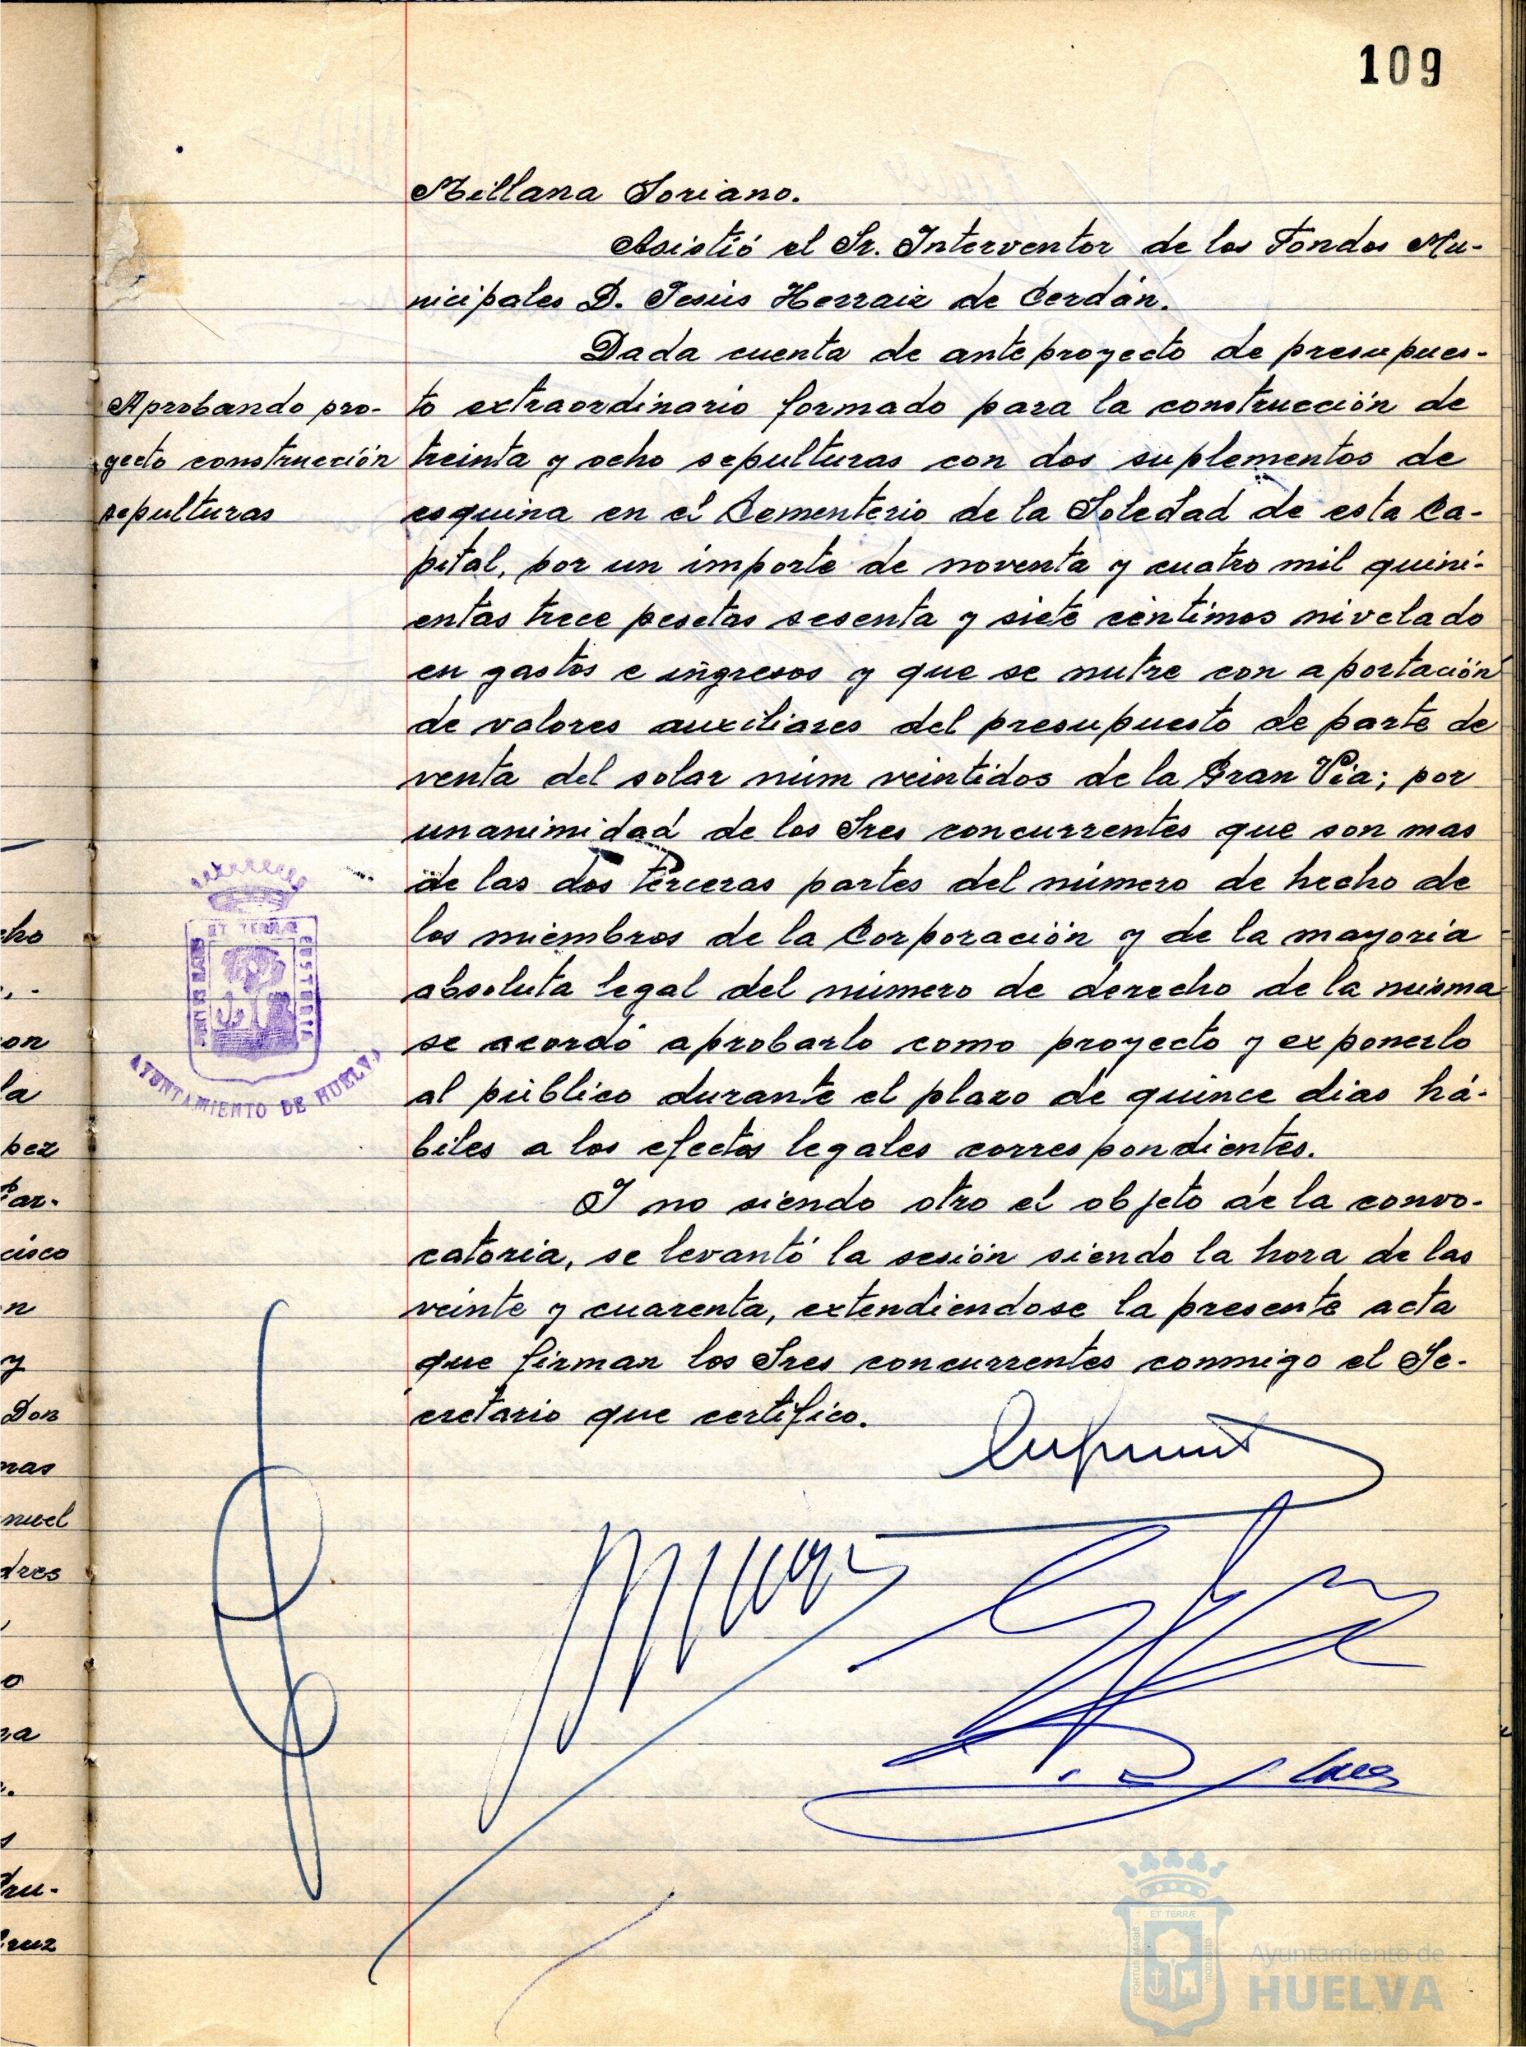 109
Millana Soriano.
Asistió el Sr. Interventor de los Fondos Mu-
nicipales D. Jesús Herraiz de Cerdán.
Dada cuenta de anteproyecto de presupues-
Aprobando pro-
yecto construcción
sepulturas
to extraordinario formado para la construcción de
treinta y ocho sepulturas con dos suplementos de
esquina en el Cementerio de la Soledad de esta Ca-
pital, por un importe de noventa y cuatro mil quini-
entas trece pesetas sesenta y siete céntimos nivelado
en gastos e ingresos y que se nutre con aportación
de valores auxiliares del presupuesto de parte de
venta del solar núm veintidos de la Gran Vía; por
unanimidad de los Sres concurrentes que son mas
de las dos terceras partes del número de hecho de
los miembros de la Corporación y de la mayoría
absoluta legal del número de derecho de la misma
se acordó aprobarlo como proyecto y exponerlo
al público durante el plazo de quince dias há-
biles a los efectos legales correspondientes.
Y no siendo otro el objeto de la convo-
catoria, se levantó la sesión siendo la hora de las
veinte y cuarenta, extendiendose la presente acta
que firman los Sres concurrentes conmigo el Se-
cretario que certifico.
ET TERRÆ
AYUNTAMIENTO DE HUELVA
cho
on
la
pez
cisco
n
y
Don
mas
nuel
dres
o
Cruz
ET TERRÆ
Ayuntamiento de
HUELVA